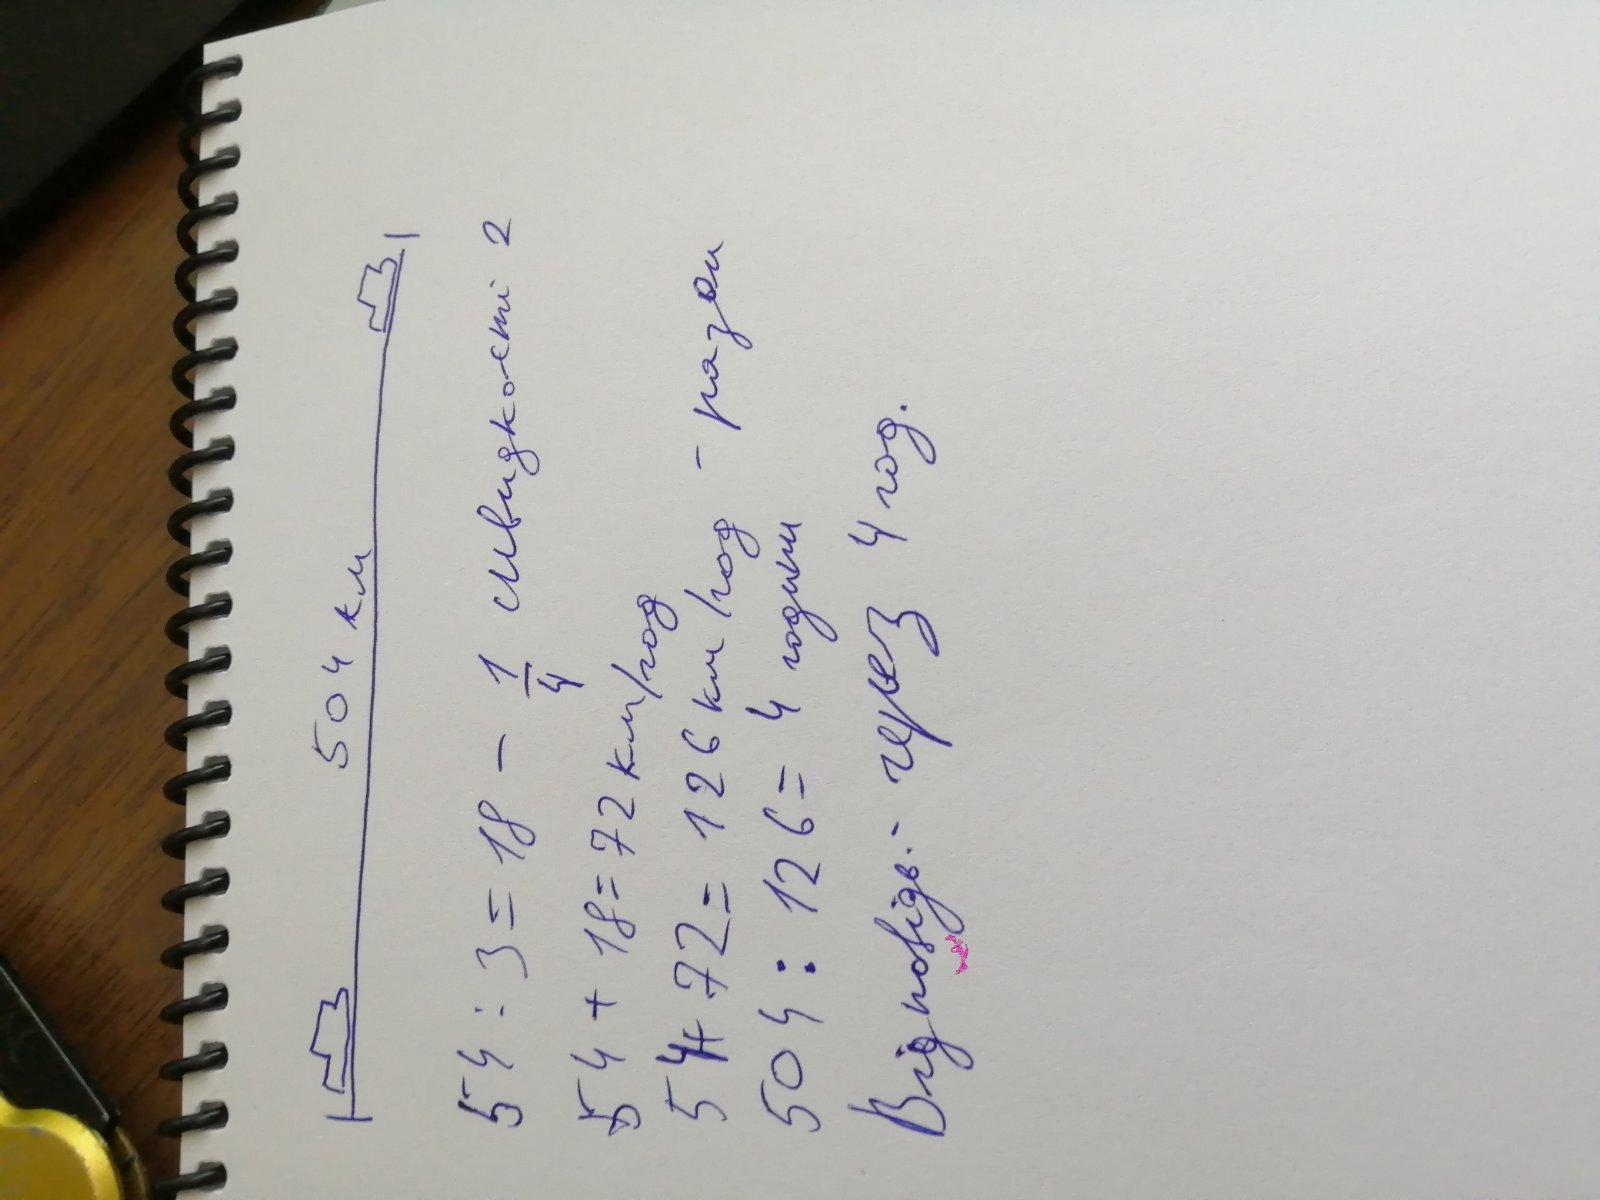 504 км
54 : 3 = 18 - 1/4 швидкості 2
54 + 18 = 72 км/год
54 + 72 = 126 км/год - разом
504 : 126 = 4 години
Відповідь: через 4 год.